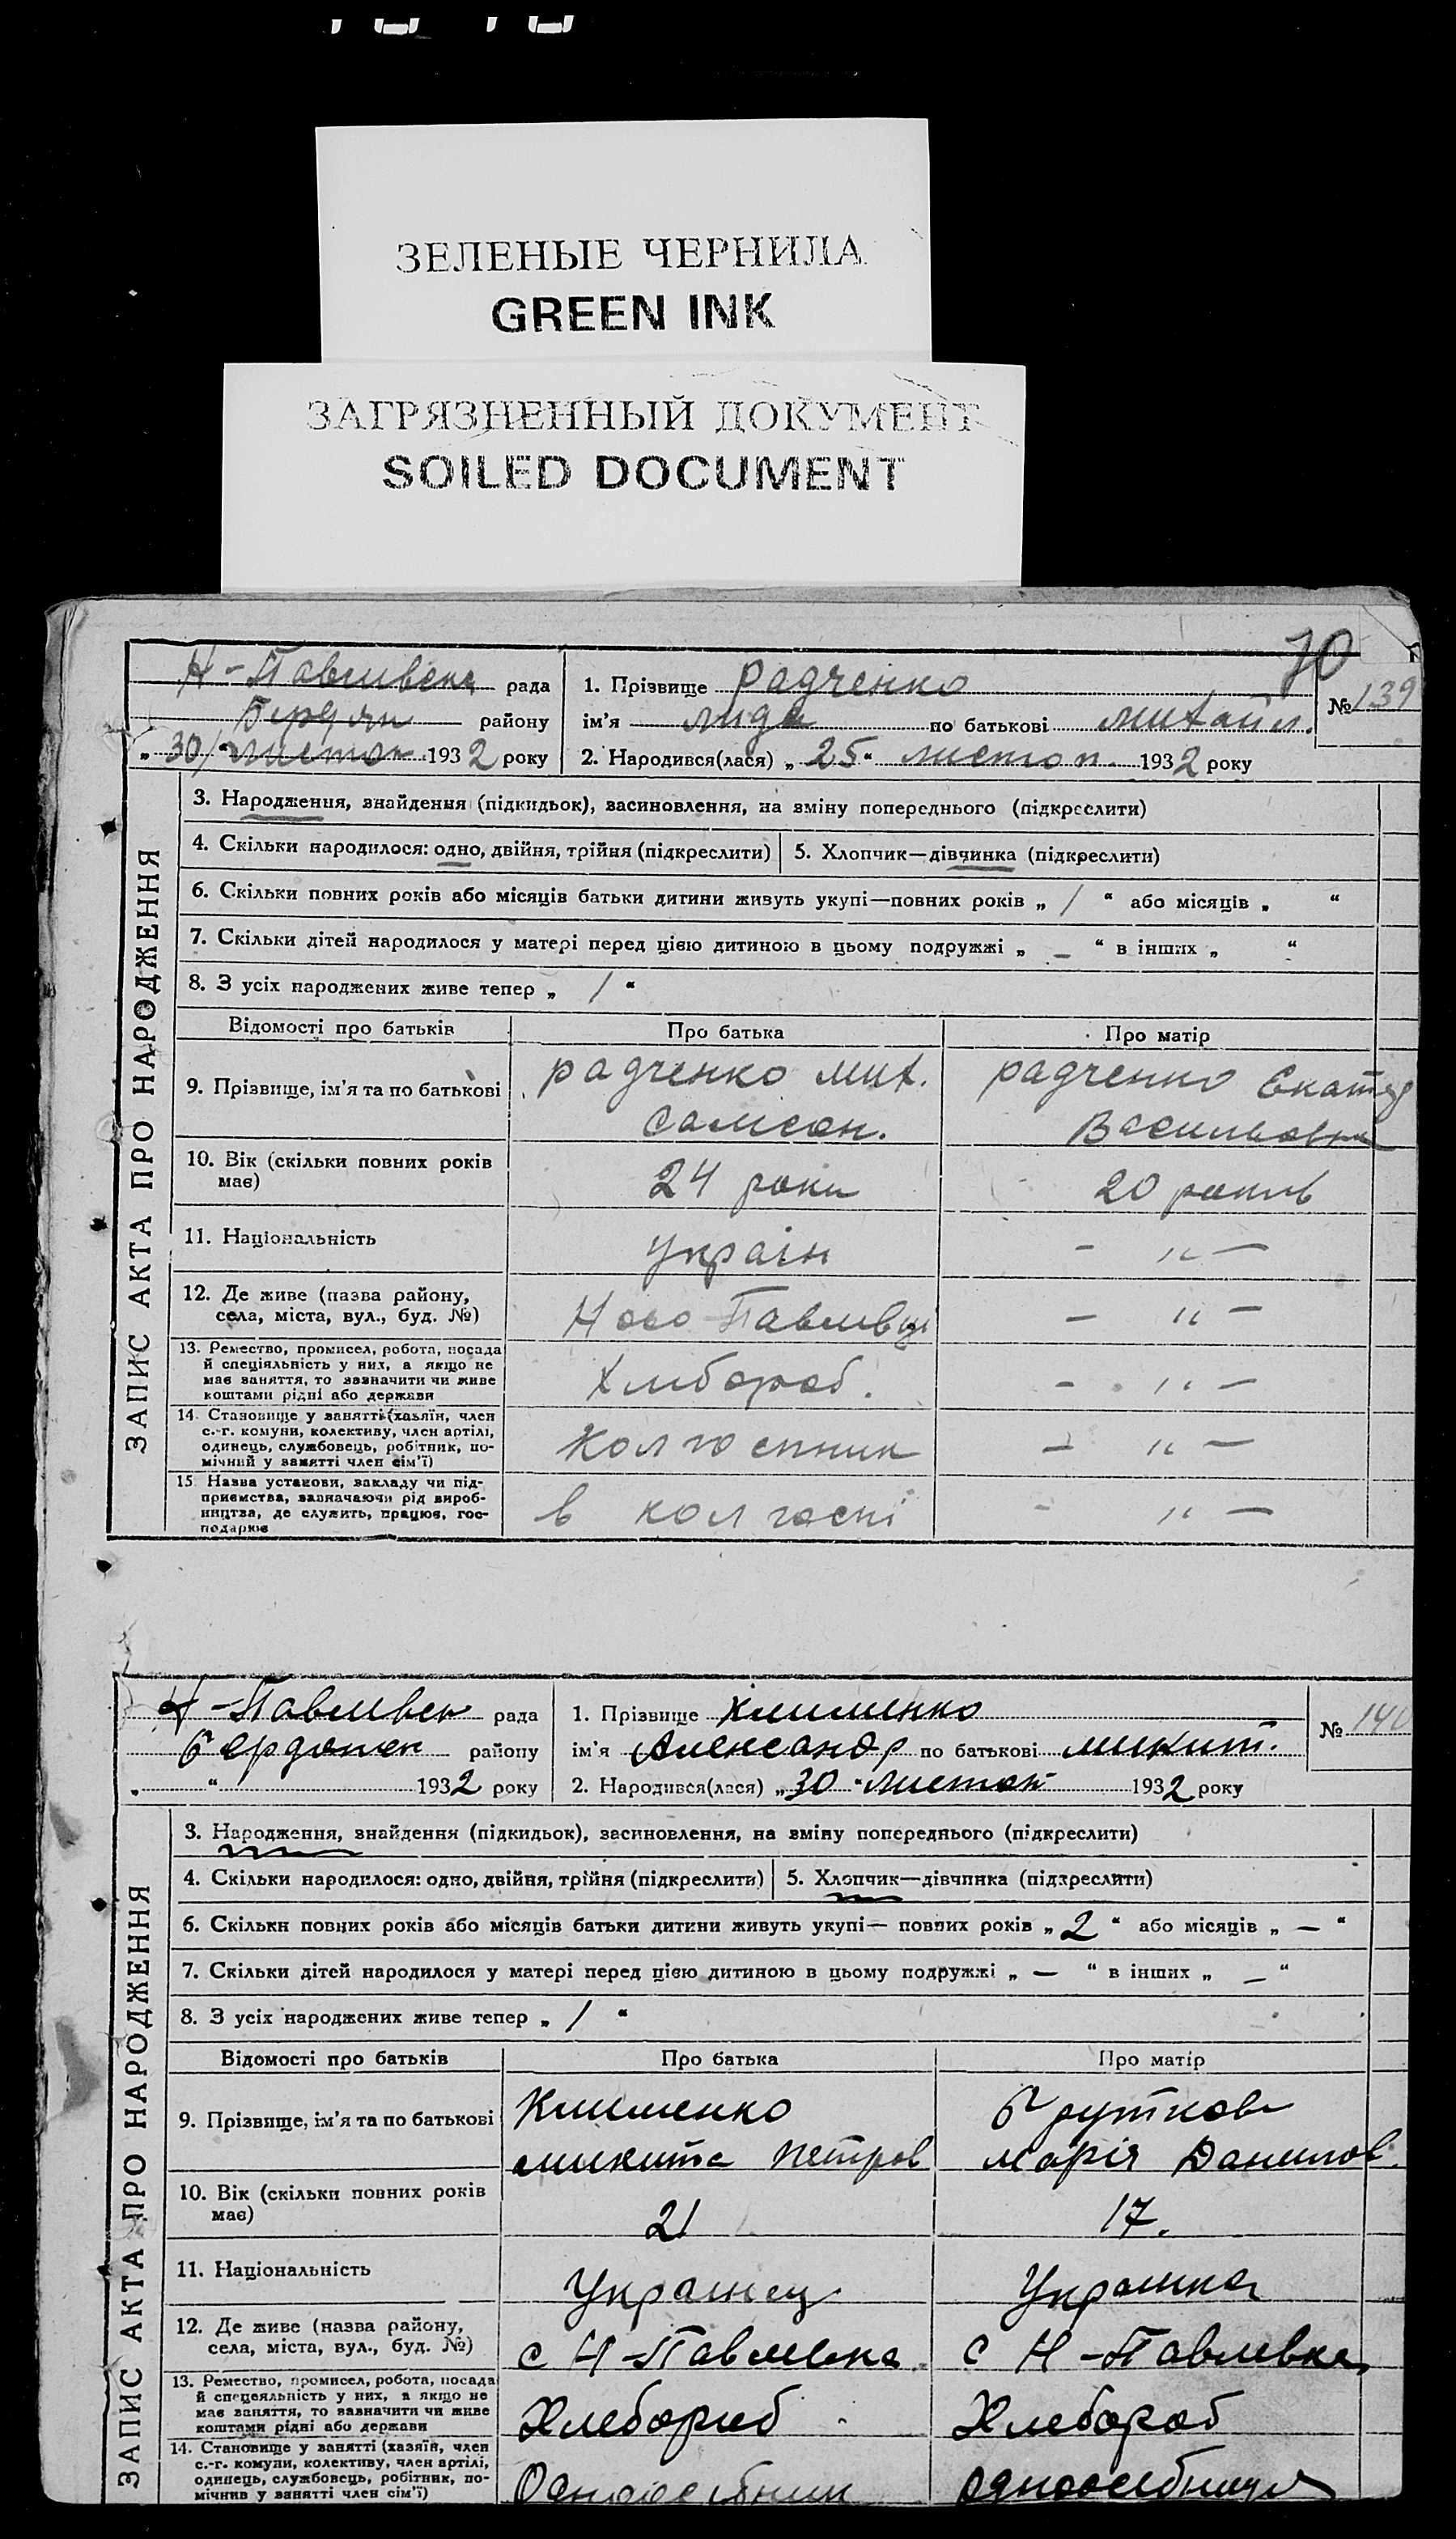 ЗЕЛЕНЫЕ ЧЕРНИЛА
GREEN INK
ЗАГРЯЗНЕННЫЙ ДОКУМЕНТ
SOILED DOCUMENT
70
Н-Павливска рада
Бердян району
„30" листоп 1932 року
1. Прізвище Радченко
ім'я Лида по батькові Михайл.
2. Народився(лася) „25" листоп. 1932 року
№ 139
ЗАПИС АКТА ПРО НАРОДЖЕННЯ
3. Народження, знайдення (підкидьок), засиновлення, на зміну попереднього (підкреслити)
4. Скільки народилося: одно, двійня, трійня (підкреслити) 5. Хлопчик—дівчинка (підкреслити)
6. Скільки повних років або місяців батьки дитини живуть укупі—повних років „ 1 " або місяців „ "
7. Скільки дітей народилося у матері перед цією дитиною в цьому подружжі „ — " в інших „ "
8. З усіх народжених живе тепер „ 1 "
Відомості про батьків Про батька Про матір
9. Прізвище, ім'я та по батькові
Радченко Мих.
Самсон.
Радченко Екатер
Васильовна
10. Вік (скільки повних років
має)
24 роки
20 рокив
11. Національність
Украін
— „ —
12. Де живе (назва району,
села, міста, вул., буд. №)
Ново-Павливці
— „ —
13. Ремество, промисел, робота, посада
й спеціяльність у них, а якщо не
має заняття, то зазначити чи живе
коштами рідні або держави
Хлибороб.
— „ —
14. Становище у занятті (хазяїн, член
с.-г. комуни, колективу, член артілі,
одинець, службовець, робітник, по-
мічний у занятті член сім'ї)
Колгоспник
— „ —
15. Назва установи, закладу чи під-
приємства, зазначаючи рід вироб-
ництва, де служить, працює, гос-
подарює
в колгоспі
— „ —
Н-Павливск рада
Бердянск району
„ " 1932 року
1. Прізвище Клименко
ім'я Александр по батькові Микит.
2. Народився(лася) „30" листоп 1932 року
№ 140
ЗАПИС АКТА ПРО НАРОДЖЕННЯ
3. Народження, знайдення (підкидьок), засиновлення, на зміну попереднього (підкреслити)
4. Скільки народилося: одно, двійня, трійня (підкреслити) 5. Хлопчик—дівчинка (підкреслити)
6. Скільки повних років або місяців батьки дитини живуть укупі— повних років „ 2 " або місяців „ — "
7. Скільки дітей народилося у матері перед цією дитиною в цьому подружжі „ — " в інших „ — "
8. З усіх народжених живе тепер „ 1 "
Відомості про батьків Про батька Про матір
9. Прізвище, ім'я та по батькові
Клименко
Микита Петров
Бруткова
Марія Данилов.
10. Вік (скільки повних років
має)
21
17.
11. Національність
Украинец
Украинка
12. Де живе (назва району,
села, міста, вул., буд. №)
с Н-Павливка
с Н-Павливка
13. Ремество, промисел, робота, посада
й спецеяльність у них, а якщо не
має заняття, то зазначити чи живе
коштами рідні або держави
Хлебороб
Хлебороб
14. Становище у занятті (хазяїн, член
с.-г. комуни, колективу, член артілі,
одинець, службовець, робітник, по-
мічнив у занятті член сім'ї)
Одноосібник
Одноосебниця